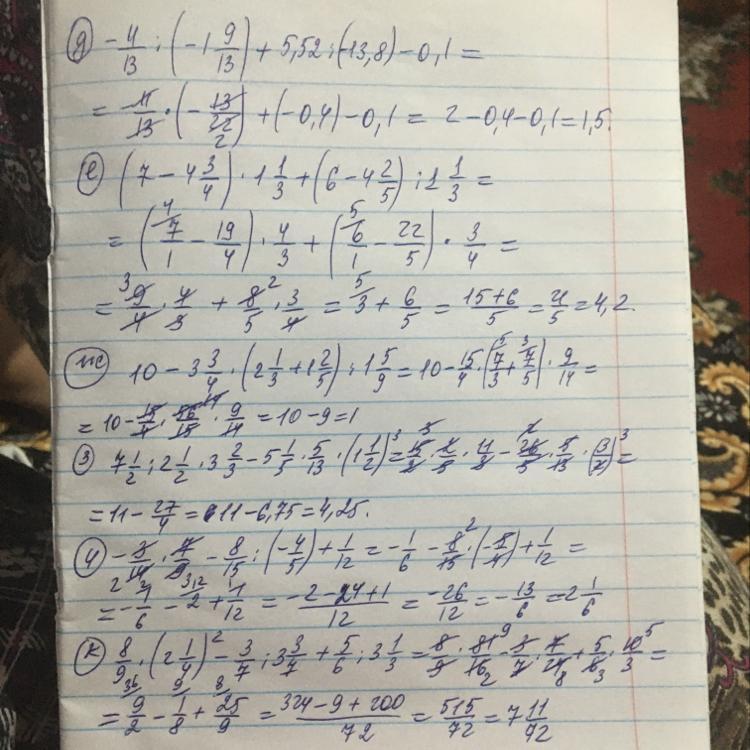 д) -4/13 : (-1 9/13) + 5,52 : (-13,8) - 0,1 =
= 11/13 · (-13/22) + (-0,4) - 0,1 = 2 - 0,4 - 0,1 = 1,5.
е) (7 - 4 3/4) · 1 1/3 + (6 - 4 2/5) : 1 1/3 =
= (7/1 - 19/4) · 4/3 + (6/1 - 22/5) · 3/4 =
= 9/4 · 4/3 + 8/5 · 3/4 = 3 + 6/5 = 15+6/5 = 21/5 = 4,2.
ж) 10 - 3 3/4 · (2 1/3 + 1 2/5) : 1 5/9 = 10 - 15/4 · (7/3 + 7/5) · 9/14 =
= 10 - 15/4 · 56/15 · 9/14 = 10 - 9 = 1
з) 7 1/2 : 2 1/2 · 3 2/3 - 5 1/5 · 5/13 · (1 1/2)³ = 15/2 · 2/5 · 11/3 - 26/5 · 5/13 · (3/2)³ =
= 11 - 27/4 = 11 - 6,75 = 4,25.
и) -3/14 · 7/9 - 8/15 : (-4/5) + 1/12 = -1/6 - 8/15 · (-5/4) + 1/12 =
= -1/6 - 2/2 + 1/12 = -2-24+1/12 = -26/12 = -13/6 = 2 1/6
к) 8/9 · (2 1/4)² - 3/7 : 3 3/7 + 5/6 : 3 1/3 = 8/9 · 81/16 - 3/7 · 7/24 + 5/6 · 10/3 =
= 9/2 - 1/8 + 25/9 = 324-9+200/72 = 515/72 = 7 11/72